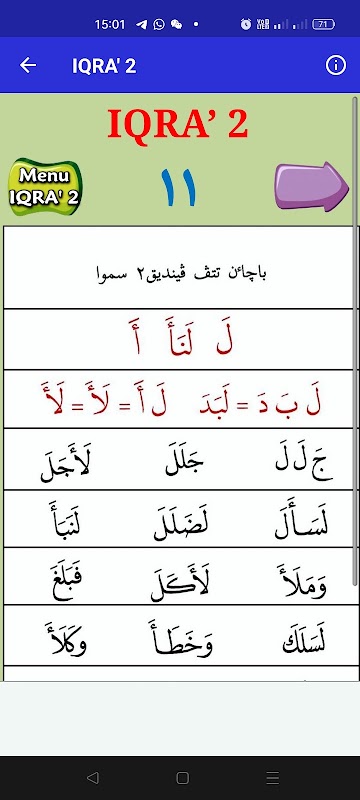 15:01 71
IQRA' 2
IQRA’ 2
Menu
IQRA' 2
١١
باچاءن تتڤ ڤينديق٢ سموا
لَ لَنَأَ أَ
لَ بَ دَ = لَبَدَ لَ أَ = لَأَ = لَأَ
جَ لَ لَ جَلَلَ لَأَجَلَ
لَسَأَلَ لَضَلَلَ لَنَبَأَ
وَمَلَأَ لَأَكَلَ فَبَلَغَ
لَسَلَكَ وَخَطَأَ وَكَلَأَ